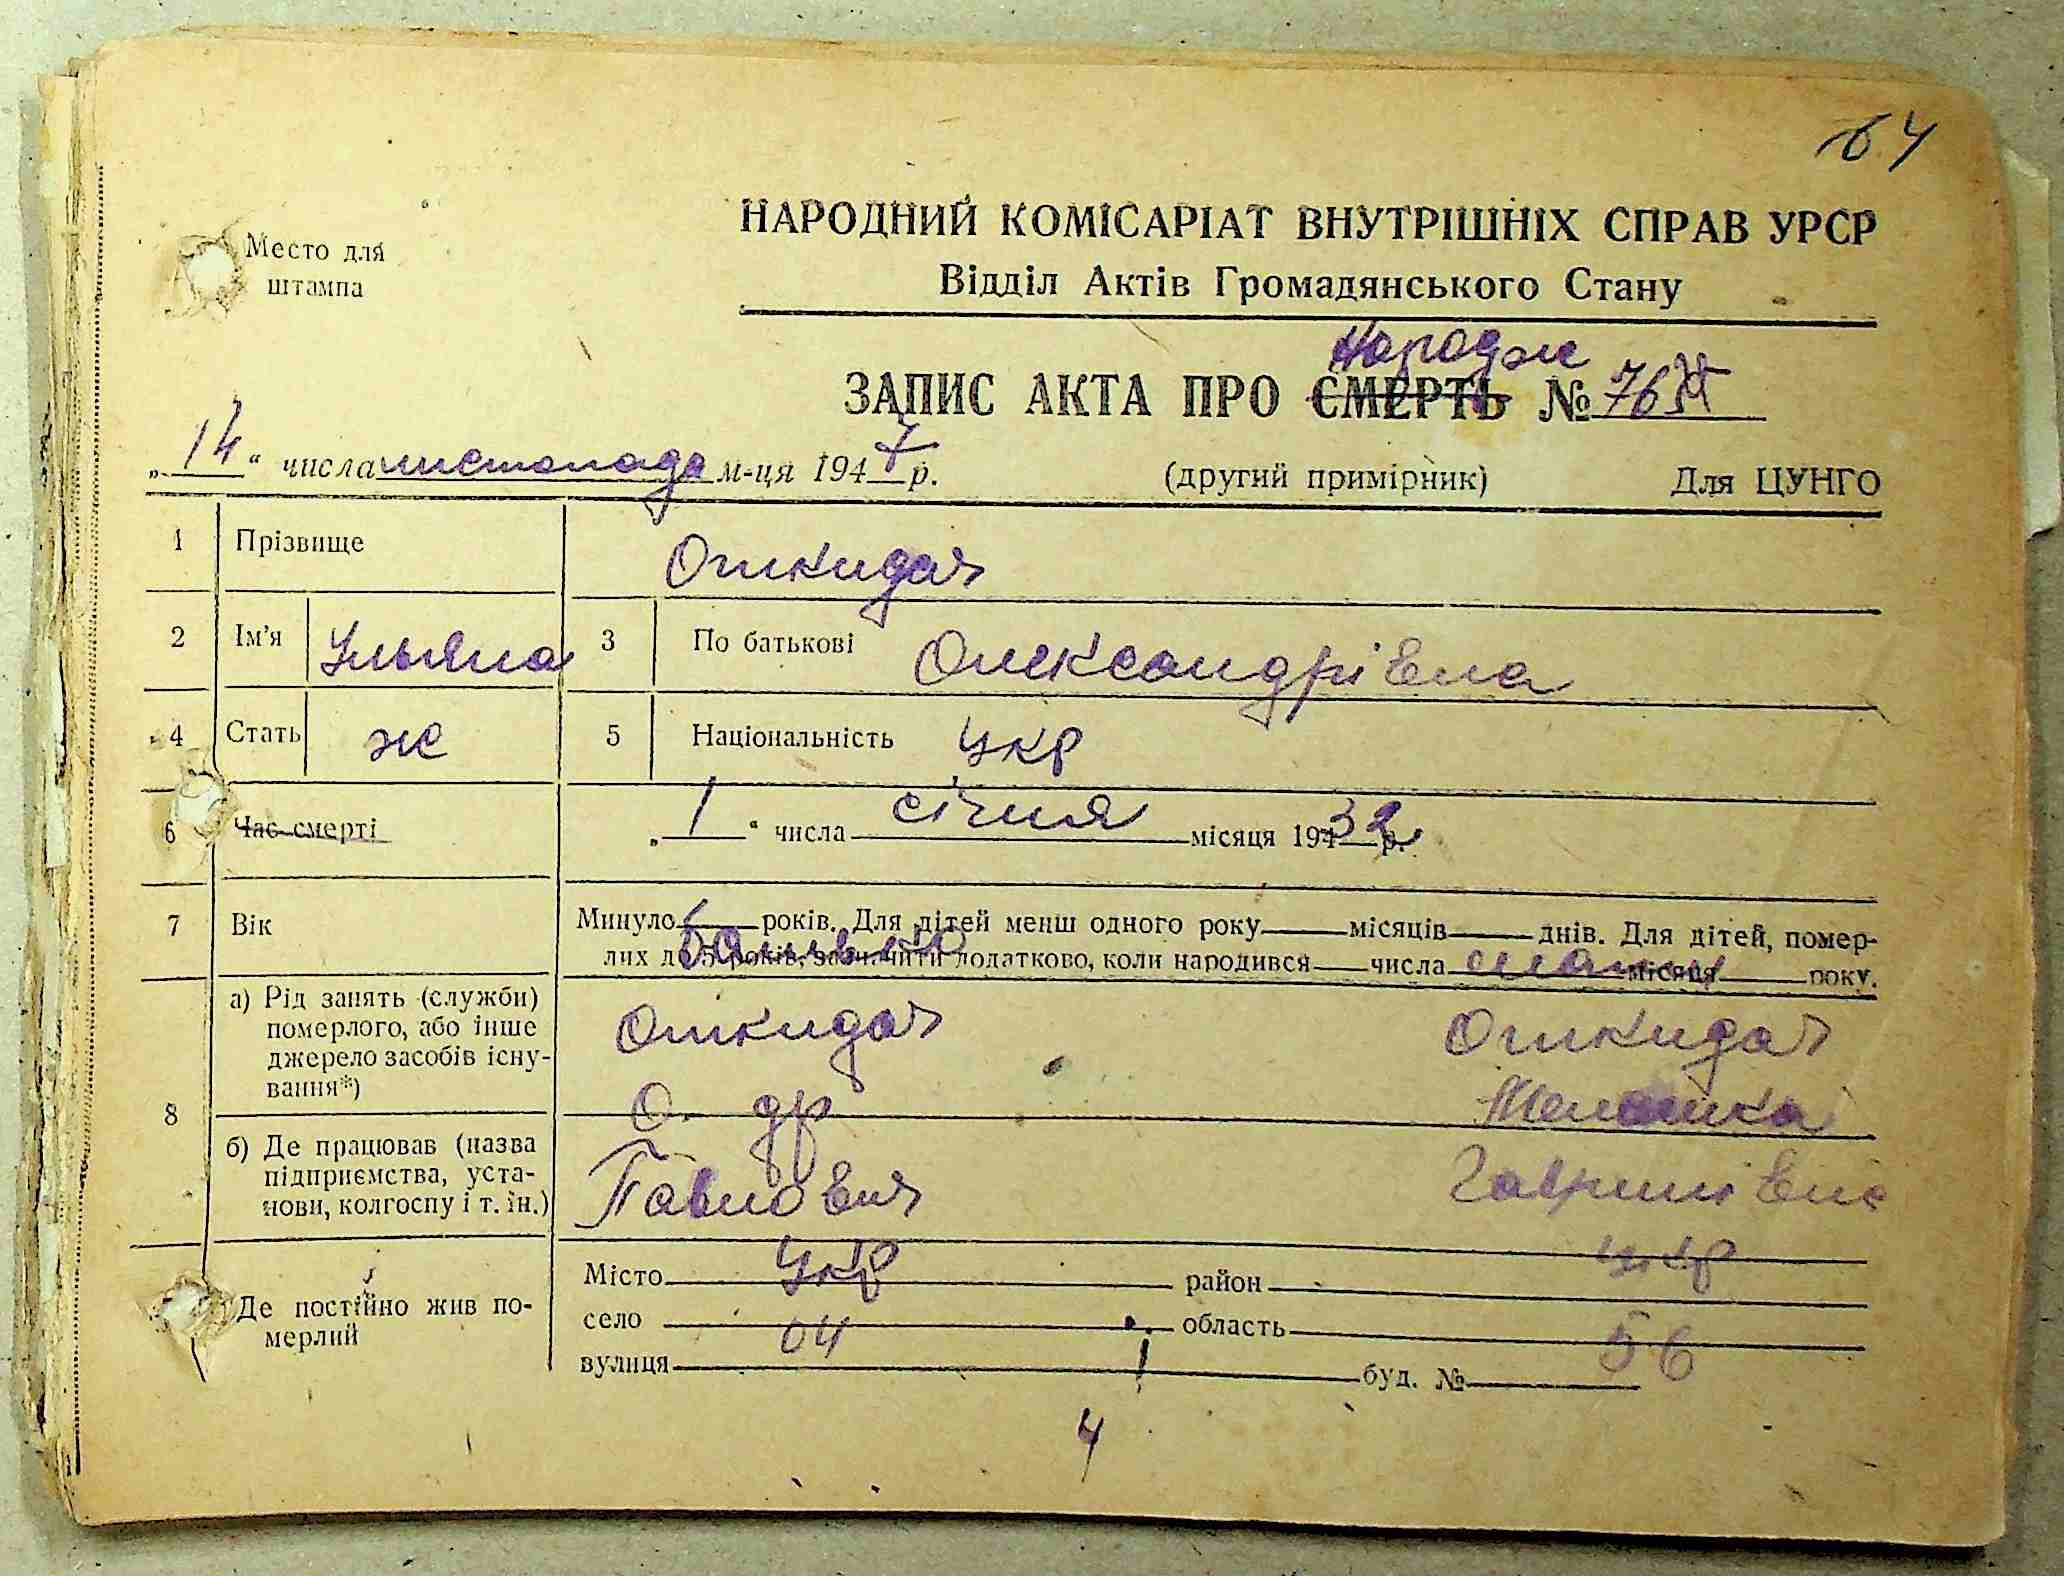 64
Место для
штампа
НАРОДНИЙ КОМІСАРІАТ ВНУТРІШНІХ СПРАВ УРСР
Відділ Актів Громадянського Стану
Народж
ЗАПИС АКТА ПРО СМЕРТЬ № 76
„14“ числа листопада м-ця 1947 р. (другий примірник) Для ЦУНГО
1 Прізвище Откидач
2 Ім'я Ульяна 3 По батькові Олександрівна
4 Стать ж 5 Національність укр
6 Час смерті „1“ числа січня місяця 194 32 р.
7 Вік Минуло років. Для дітей менш одного року місяців днів. Для дітей, помер-
лих до 5 років, зазначити додатково, коли народився числа місяця року.
батько мати
8 а) Рід занять (служби)
померлого, або інше
джерело засобів існу-
вання*)
Откидач Откидач
О др Мелашка
б) Де працював (назва
підприємства, уста-
нови, колгоспу і т. ін.)
Павлович Гаврилівна
Де постійно жив по-
мерлий
Місто укр район укр
село область
04 56
вулиця буд. №
4